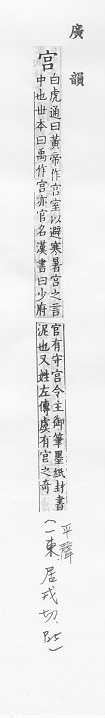 廣韻
宮
白虎通曰黃帝作宮室以避寒暑宮之言
中也世本曰禹作宮亦官名漢書曰少府
官有守宮令主御筆墨紙封書
泥也又姓左傳虞有宮之奇
平聲
(一東居戎切.